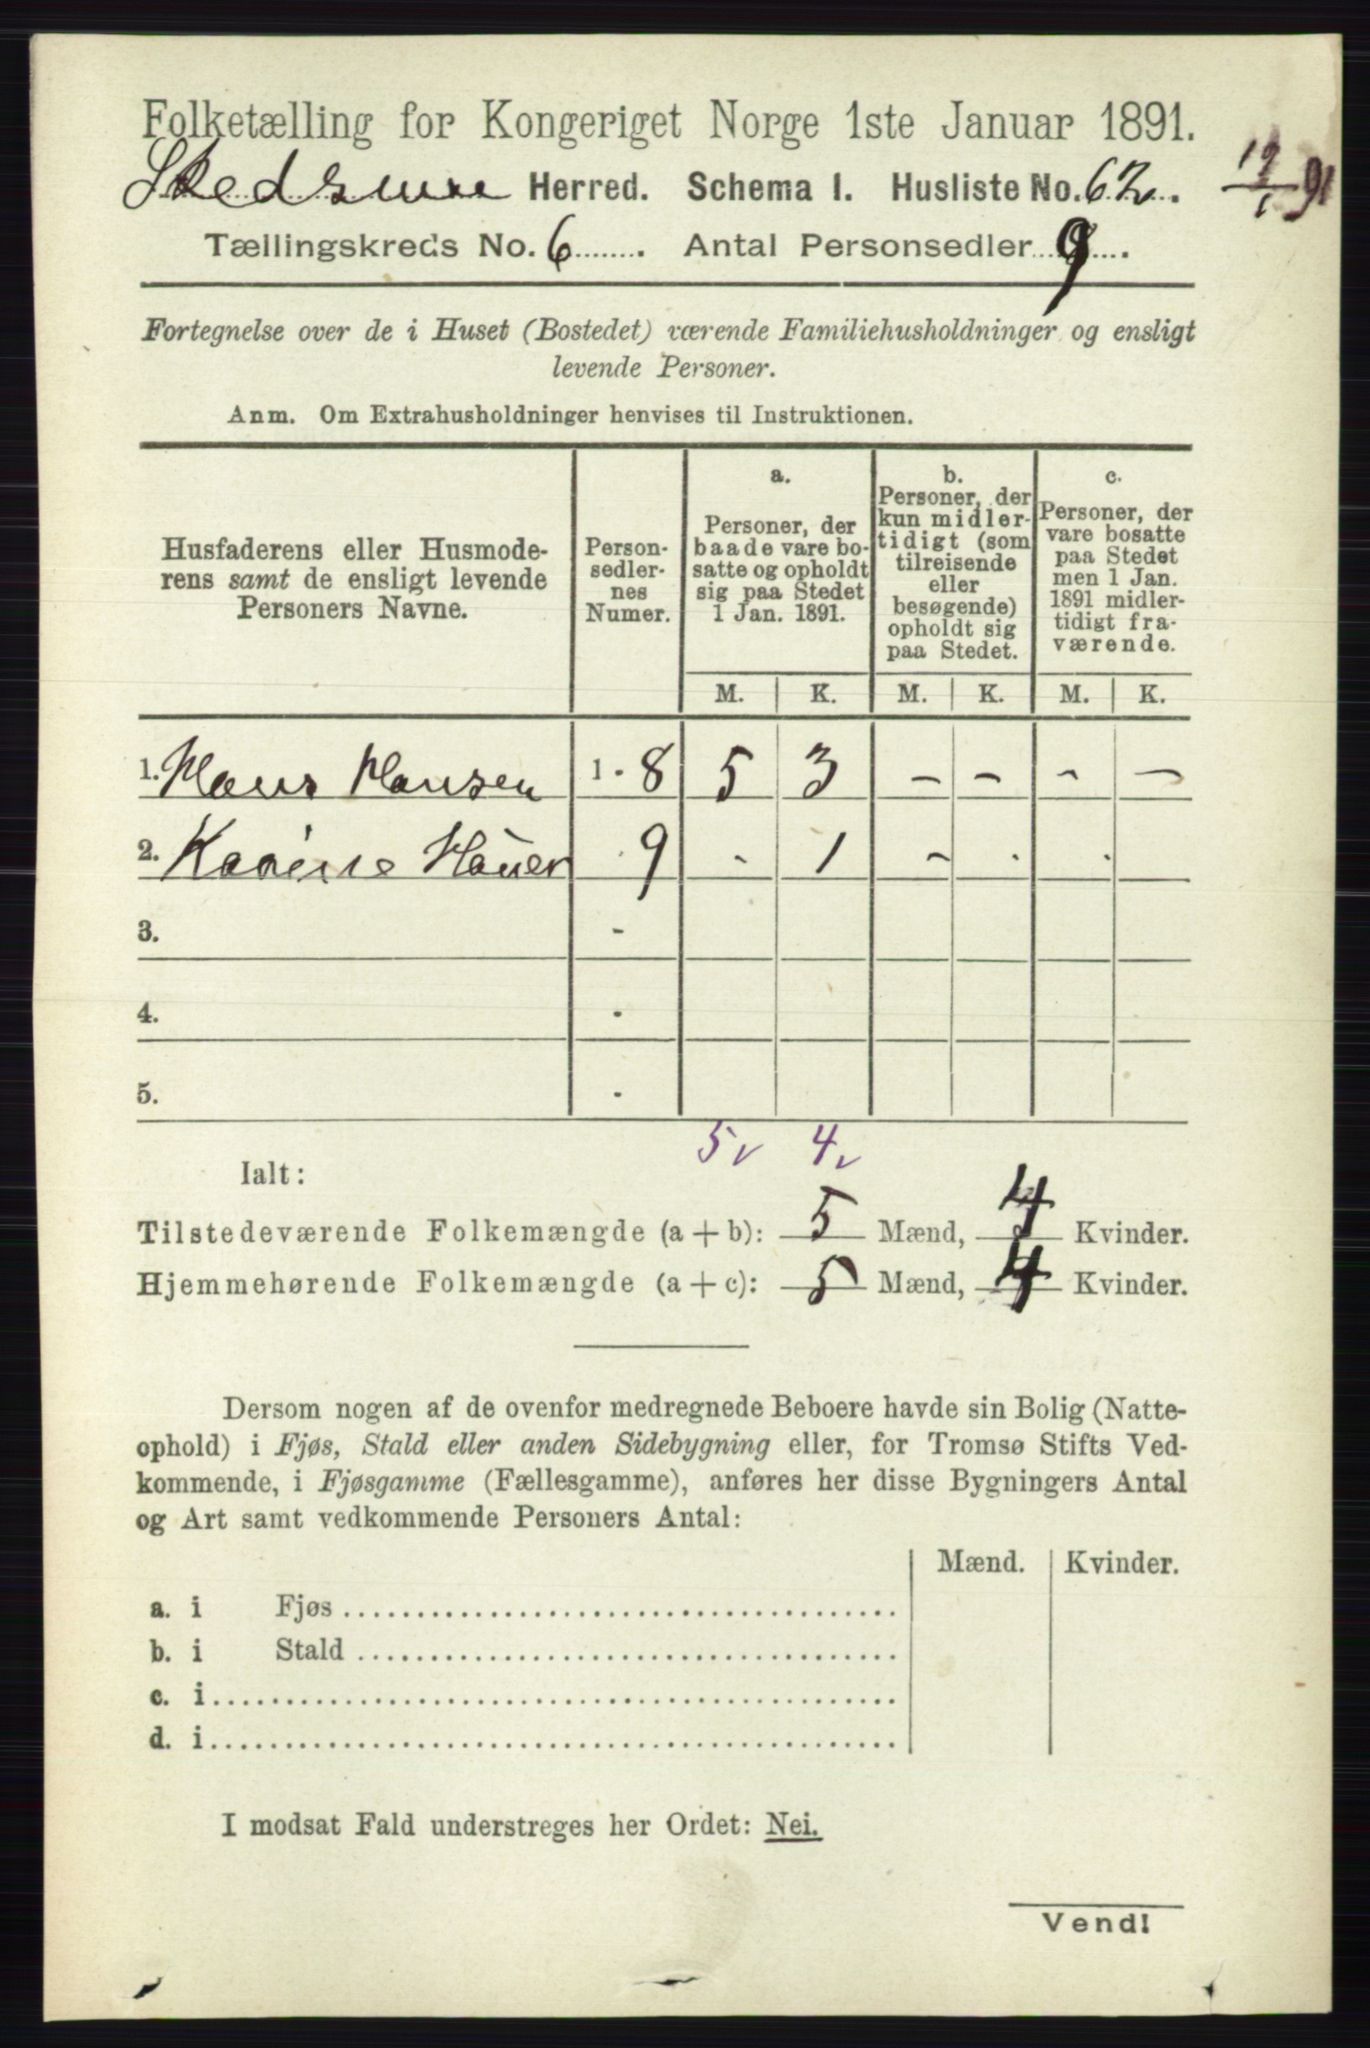 Folketælling for Kongeriget Norge 1ste Januar 1891.
Skedsmo Herred. Schema I. Husliste No. 62.
12/1 91
Tællingskreds No. 6. Antal Personsedler 9.
Fortegnelse over de i Huset (Bostedet) værende Familiehusholdninger og ensligt
levende Personer.
Anm. Om Extrahusholdninger henvises til Instruktionen.
Husfaderens eller Husmode-
rens samt de ensligt levende
Personers Navne.
Person-
sedler-
nes
Numer.
a.
Personer, der
baade vare bo-
satte og opholdt
sig paa Stedet
1 Jan. 1891.
b.
Personer, der
kun midler-
tidigt (som
tilreisende
eller
besøgende)
opholdt sig
paa Stedet.
c.
Personer, der
vare bosatte
paa Stedet
men 1 Jan.
1891 midler-
tidigt fra-
værende.
M. K. M. K. M. K.
1. Hans Hansen 1 - 8 5 3 - - - -
2. Karine 9 - 1 - . .
3. -
4. -
5. -
5 v 4 v
Ialt:
Tilstedeværende Folkemængde (a + b): 5 Mænd, 4 Kvinder.
Hjemmehørende Folkemængde (a + c): 5 Mænd, 4 Kvinder.
Dersom nogen af de ovenfor medregnede Beboere havde sin Bolig (Natte-
ophold) i Fjøs, Stald eller anden Sidebygning eller, for Tromsø Stifts Ved-
kommende, i Fjøsgamme (Fællesgamme), anføres her disse Bygningers Antal
og Art samt vedkommende Personers Antal:
Mænd. Kvinder.
a. i Fjøs
b. i Stald
c. i
d. i
I modsat Fald understreges her Ordet: Nei.
Vend!